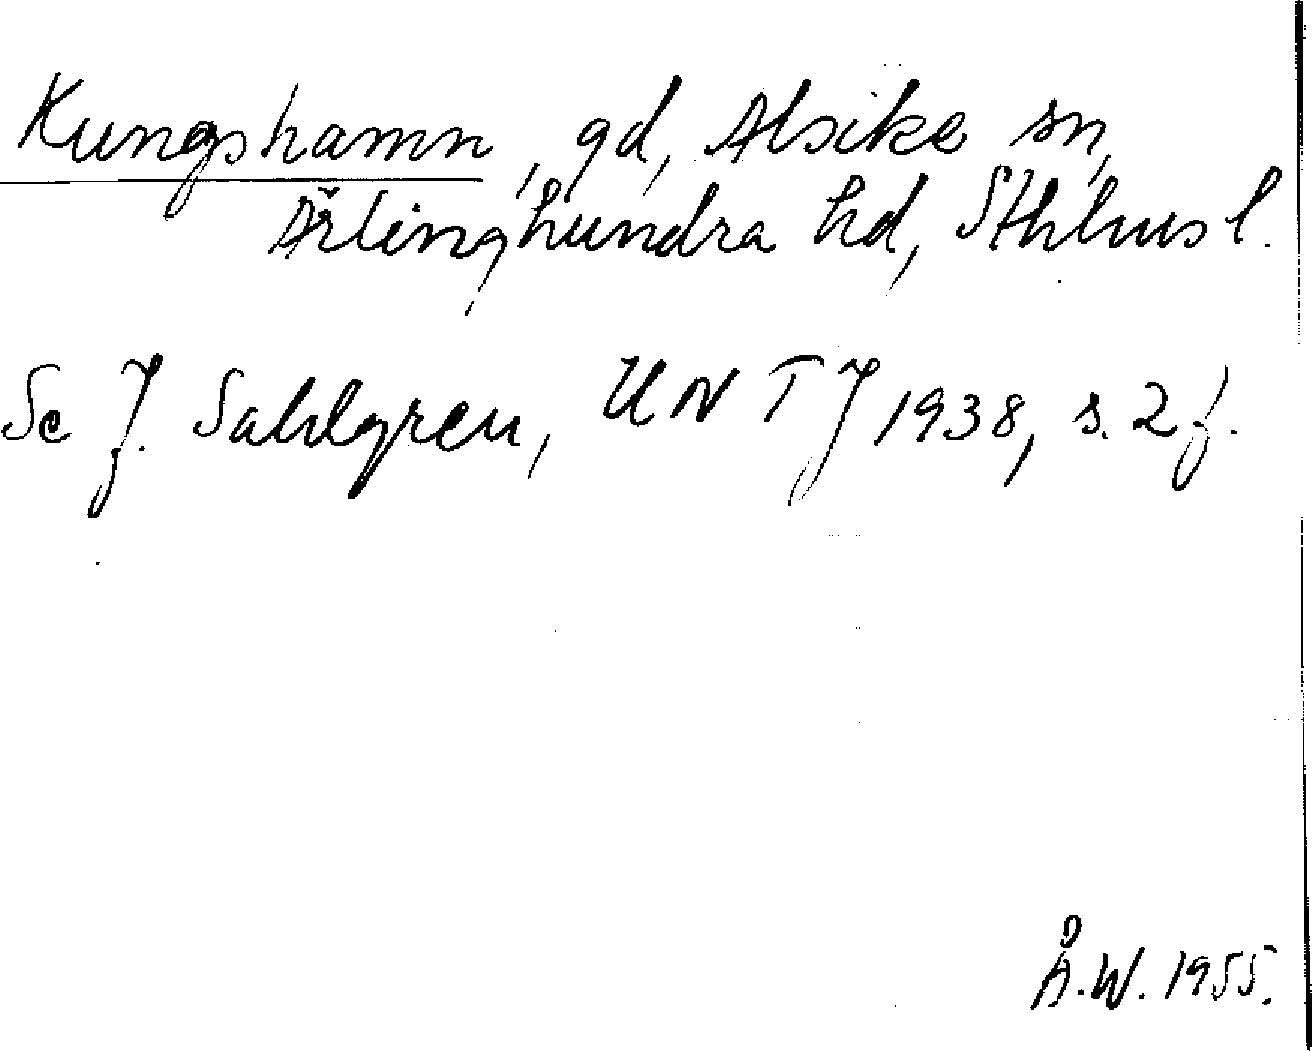 Kungshamn, gd, Alsike sn,
Ärlinghundra hd, Sthlms l.
Se J. Sahlgren, UNTJ 1938, s. 2 f.
Å.W. 1955.